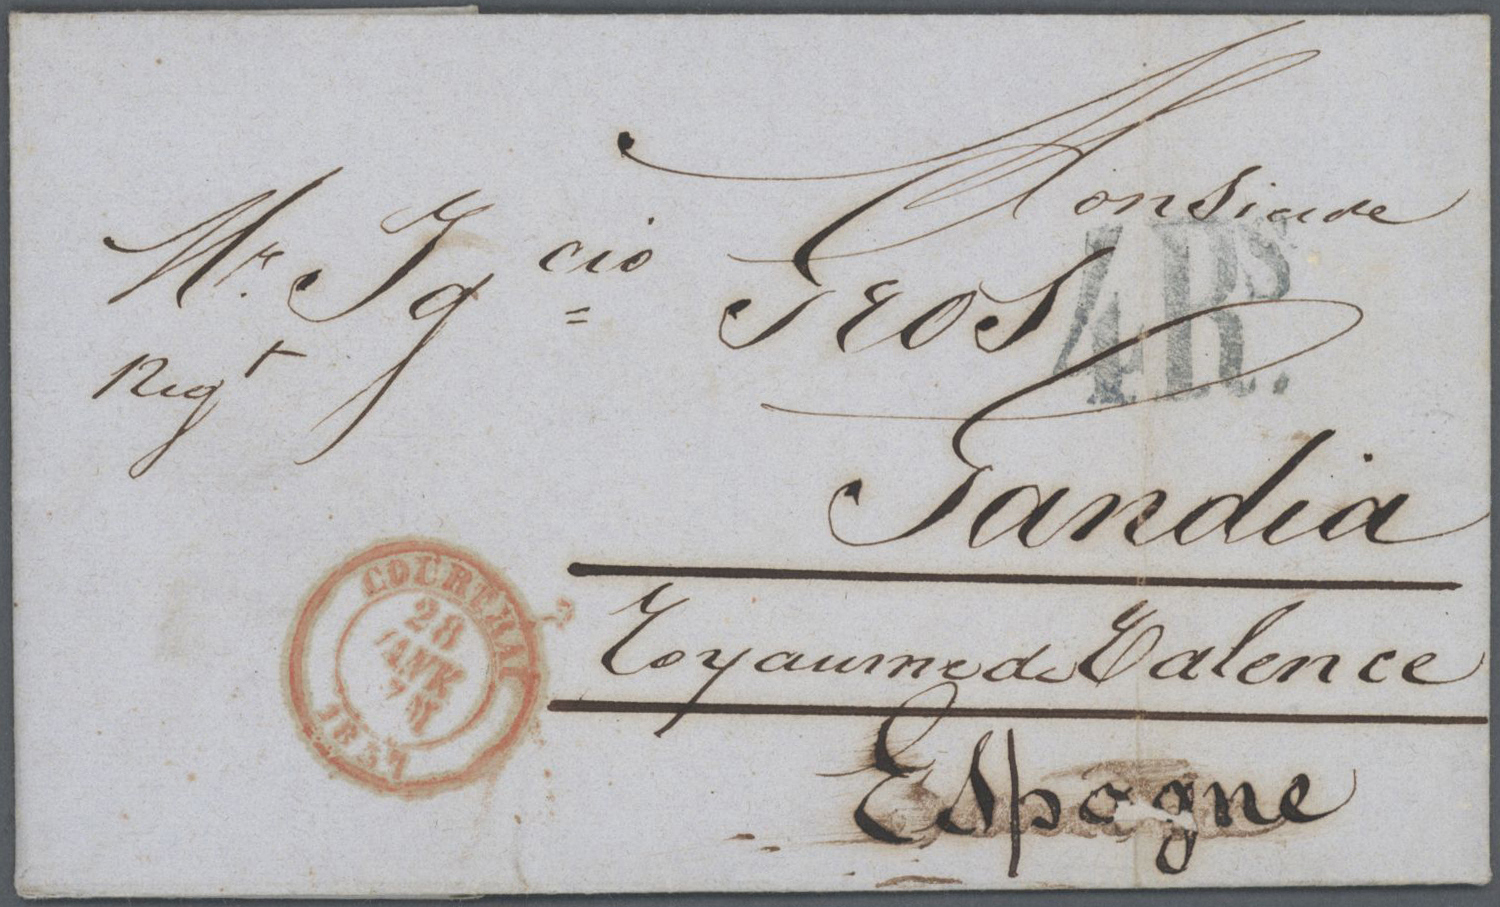 Monsieur
Mr. Ygcio Gros
Regt
4 Rs.
Gandia
Royaume de Valence
Espagne
COURTRAI
28
JANV
7M
1851